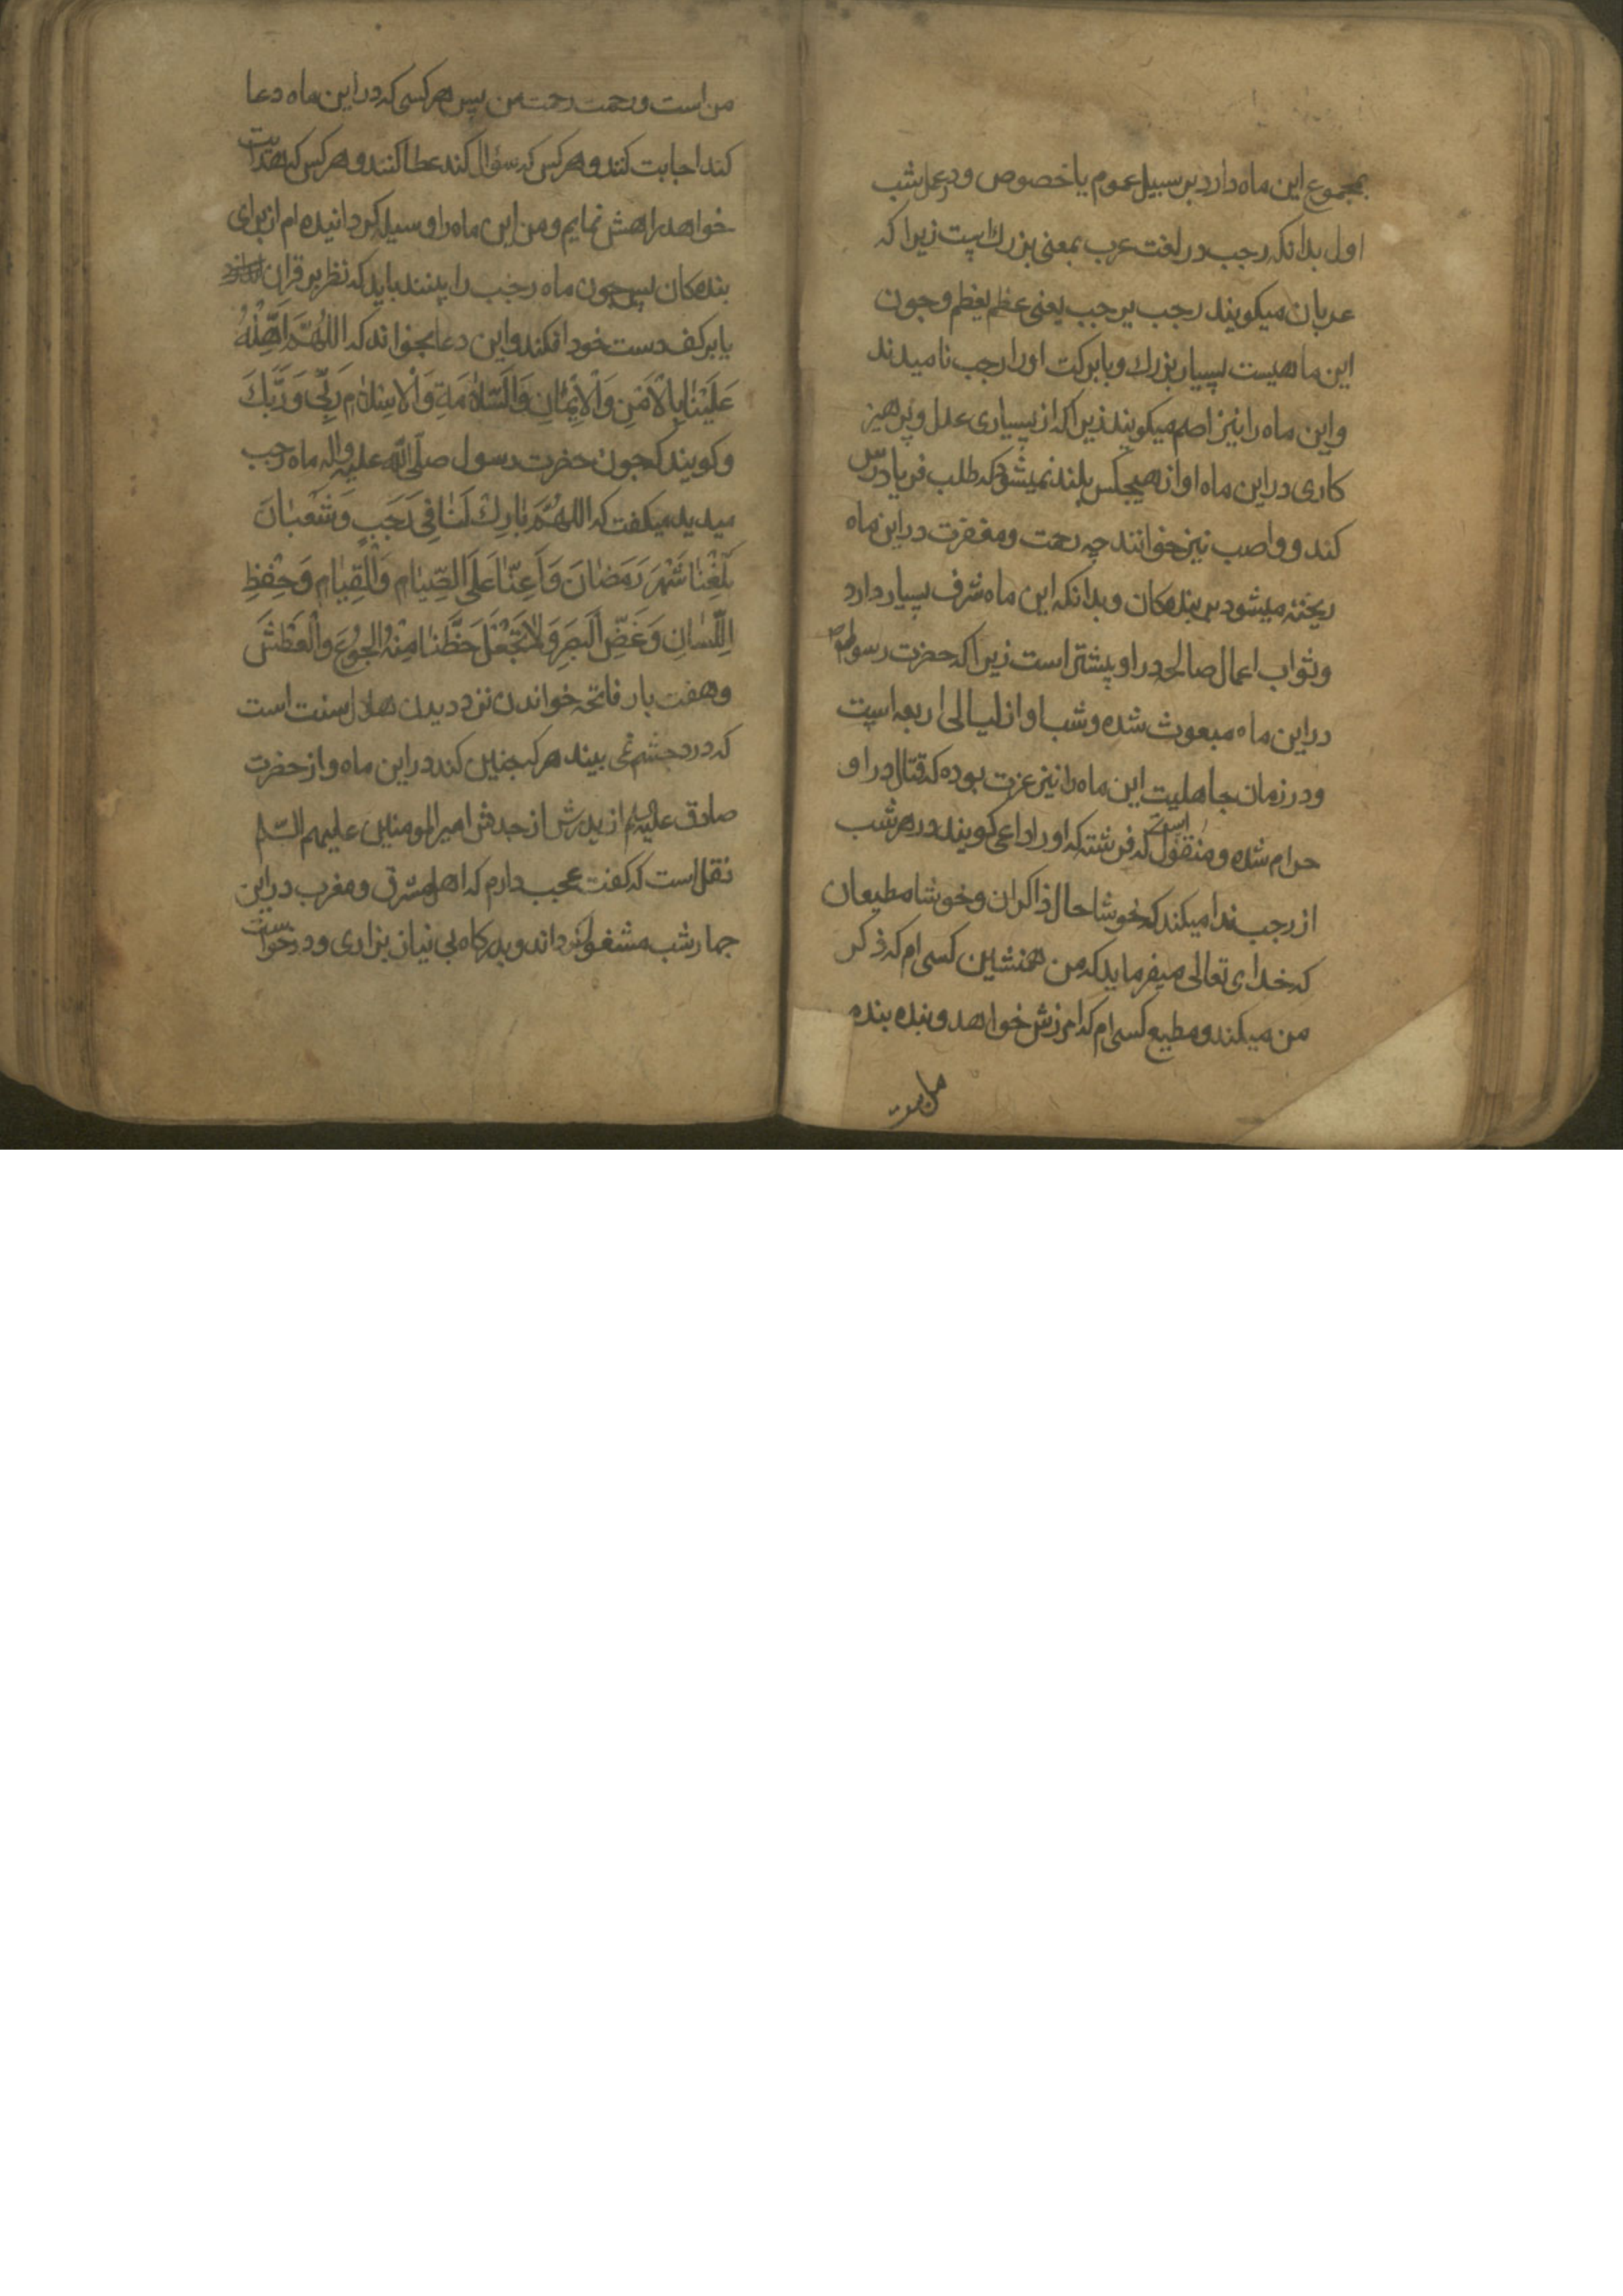 بمجموع این ماه دارد بر سبیل عموم یا خصوص و در عمل شب
اول بدانکه رجب در لغت عرب بمعنی بزرك است زیرا که
عربان میکویند رجب یرجب یعنی عظم یعظم و جون
این ماهیست بسیار بزرك و با برکت او را رجب نامیدند
و این ماه را نیز اصم میکویند زیرا که از بسیاری عدل و پرهیز
کاری در این ماه اواز هیچکس بلند نمیشود که طلب فریادرس
کند و واصب نیز خوانند چه رحمت و مغفرت در این ماه
ریخته میشود بر بندهکان و بدانکه این ماه شرف بسیار دارد
و ثواب اعمال صالحه در او بیشتر است زیرا که حضرت رسول
در این ماه مبعوث شده و شب او از لیالی اربعه است
و در زمان جاهلیت این ماه را نیز عزت بوده که قتال در او
حرام شده و منقول است که فرشته که او را داعی کویند در هر شب
از رجب ندا میکند که خوشا حال ذاکران و خوشا مطیعان
که خدای تعالی میفرماید که من همنشین کسی ام که ذکر
من میکند و مطیع کسی ام که امرزش خواهد و بنده بنده
من است و رحمت رحمت من پس هر کسی که در این ماه دعا
کند اجابت کنند و هر کس که سؤال کند عطا کنند و هر کس که هدایت
خواهد راهش نمایم و من این ماه را وسیله کردانیده ام از برای
بندهکان پس چون ماه رجب را بینند باید که نظر بر قران
یا بر کف دست خود افکند و این دعا بخواند که اللهُمَّ اَهِّلْهُ
عَلَیْنٰا بِالْاَمْنِ وَالْاِیْمٰانِ وَالسَّلٰامَةِ وَالْاِسْلٰامِ رَبّی وَرَبُّكَ
و کویند که جون حضرت رسول صلّی الله علیه واله ماه رجب
میدید میکفت که اللهُمَّ بٰارِكْ لَنٰا فِی رَجَبٍ وَشَعْبٰانَ
بَلِّغْنٰا شَهْرَ رَمَضٰانَ وَاَعِنّٰا عَلَی الصِّیٰامِ وَالْقِیٰامِ وَحِفْظِ
اللِّسٰانِ وَغَضِّ الْبَصَرِ وَلٰا تَجْعَلْ حَظَّنٰا مِنْهُ الْجُوْعَ وَالْعَطَشَ
و هفت بار فاتحه خواندن نزد دیدن هلال سنت است
که درد جشم نمی بیند هر که جنین کند در این ماه و از حضرت
صادق علیه السلم از پدرش از جدش امیر المومنین علیهم السّلم
نقل است که کفت عجب دارم که اهل مشرق و مغرب در این
جهار شب مشغول نشده اند و بدرکاه بی نیاز بزاری و درخواست